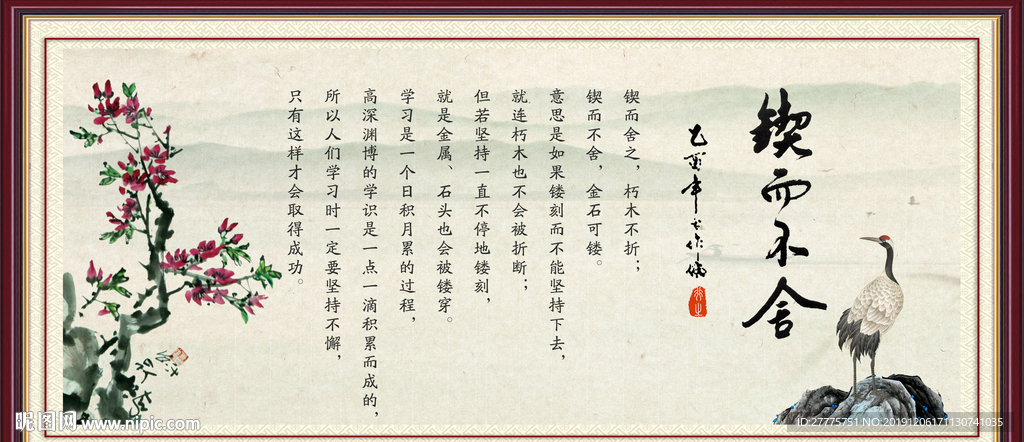 锲而不舍
乙酉年
锲而舍之，朽木不折；
锲而不舍，金石可镂。
意思是如果镂刻而不能坚持下去，
就连朽木也不会被折断；
但若坚持一直不停地镂刻，
就是金属、石头也会被镂穿。
学习是一个日积月累的过程，
高深渊博的学识是一点一滴积累而成的，
所以人们学习时一定要坚持不懈，
只有这样才会取得成功。
昵图网 www.nipic.com
ID:27775751 NO:20191206171130741035